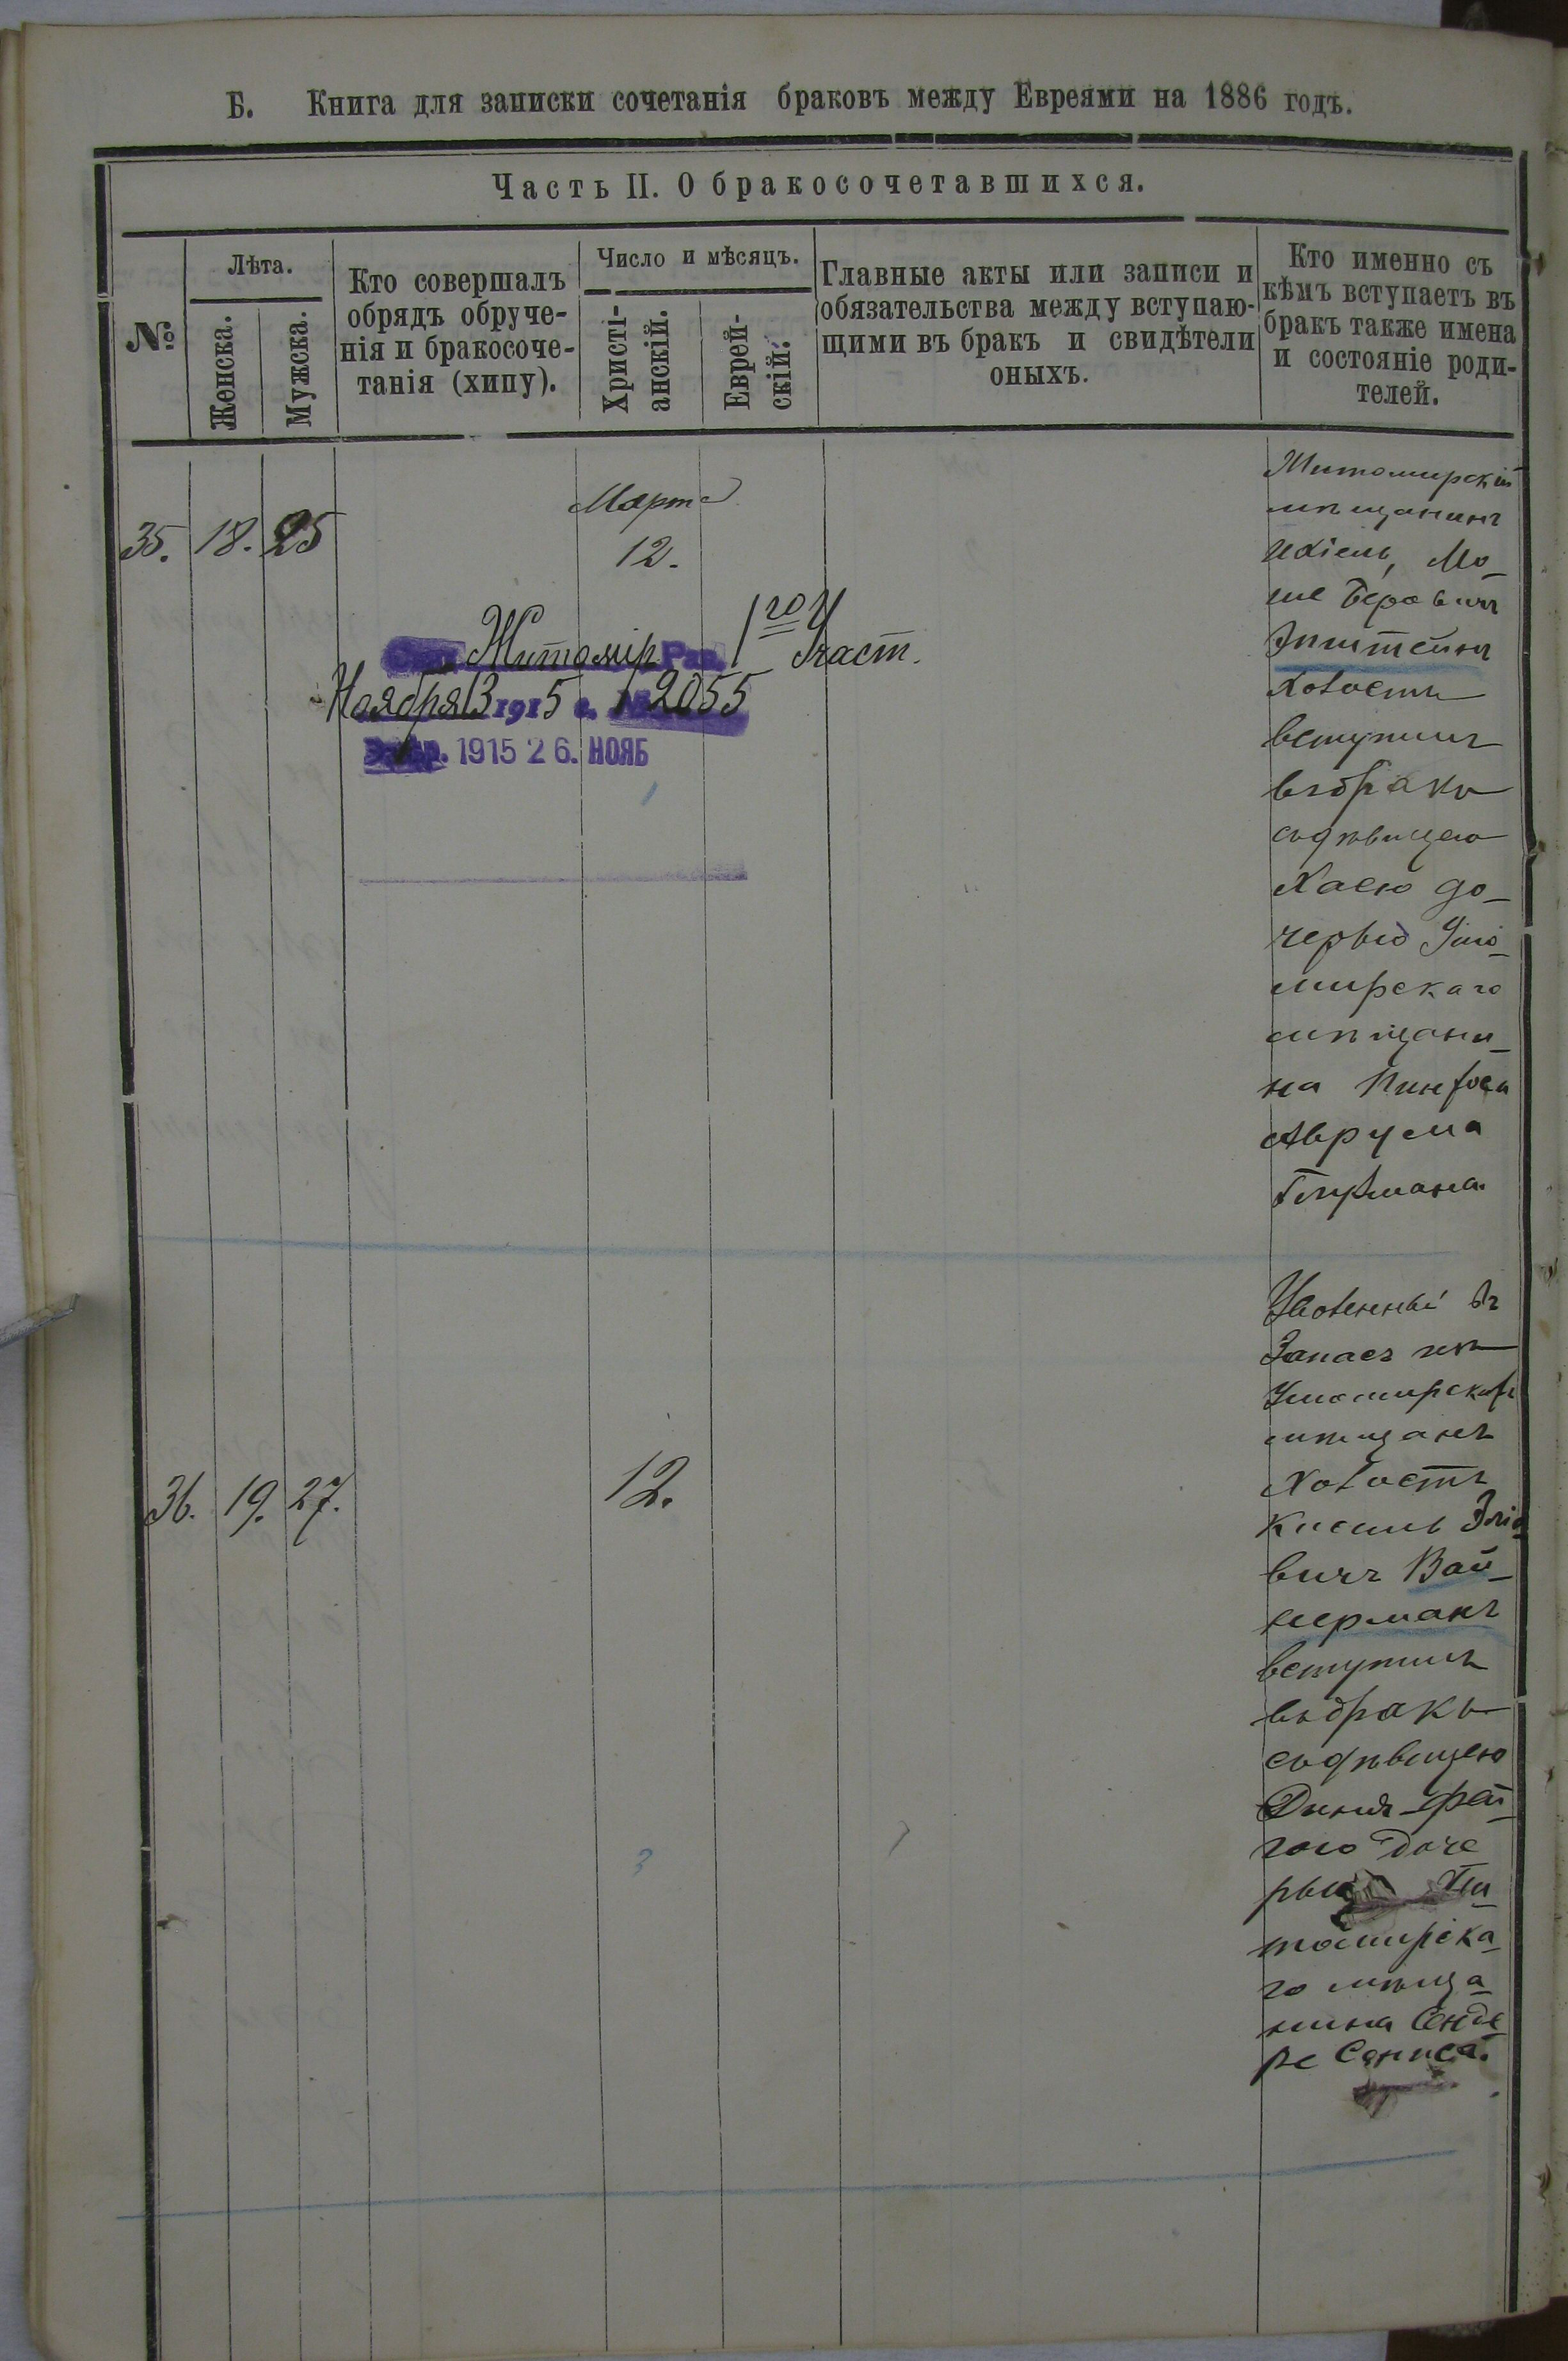 Б. Книга для записки сочетанія браковъ между Евреями на 1886 годъ.
Часть II. О бракосочетавшихся.
№
Лѣта.
Женска.
Мужска.
Кто совершалъ
обрядъ обруче-
нія и бракосоче-
танія (хипу).
Число и мѣсяцъ.
Христі-
анскій.
Еврей-
скій.
Главные акты или записи и
обязательства между вступаю-
щими въ бракъ и свидѣтели
оныхъ.
Кто именно съ
кѣмъ вступаетъ въ
бракъ также имена
и состояніе роди-
телей.
35. 18. 25
Марта
12.
Житомір Рав. 1го Участ.
Ноября 13 1915 г. № 2055
1915 26. НОЯБ
1
Житомирскій
мѣщанинъ
Ихіель, Мо-
ше Беровичъ
Эпштейнъ
холостъ
вступилъ
въ бракъ
съ дѣвицею
Хаею до-
черью Жито-
мирскаго
мѣщани-
на Пинхоса
Аврума
36. 19. 27.
12.
3
Уволенный въ
Запасъ изъ
Житомирскихъ
мѣщанъ
холостъ
Кисиль Элio-
вичъ Вай-
нерманъ
вступилъ
въ бракъ
съ дѣвицею
Динія-Фей-
гою доче
рью Жи-
томирска-
го мѣща-
нина Сенде-
ре